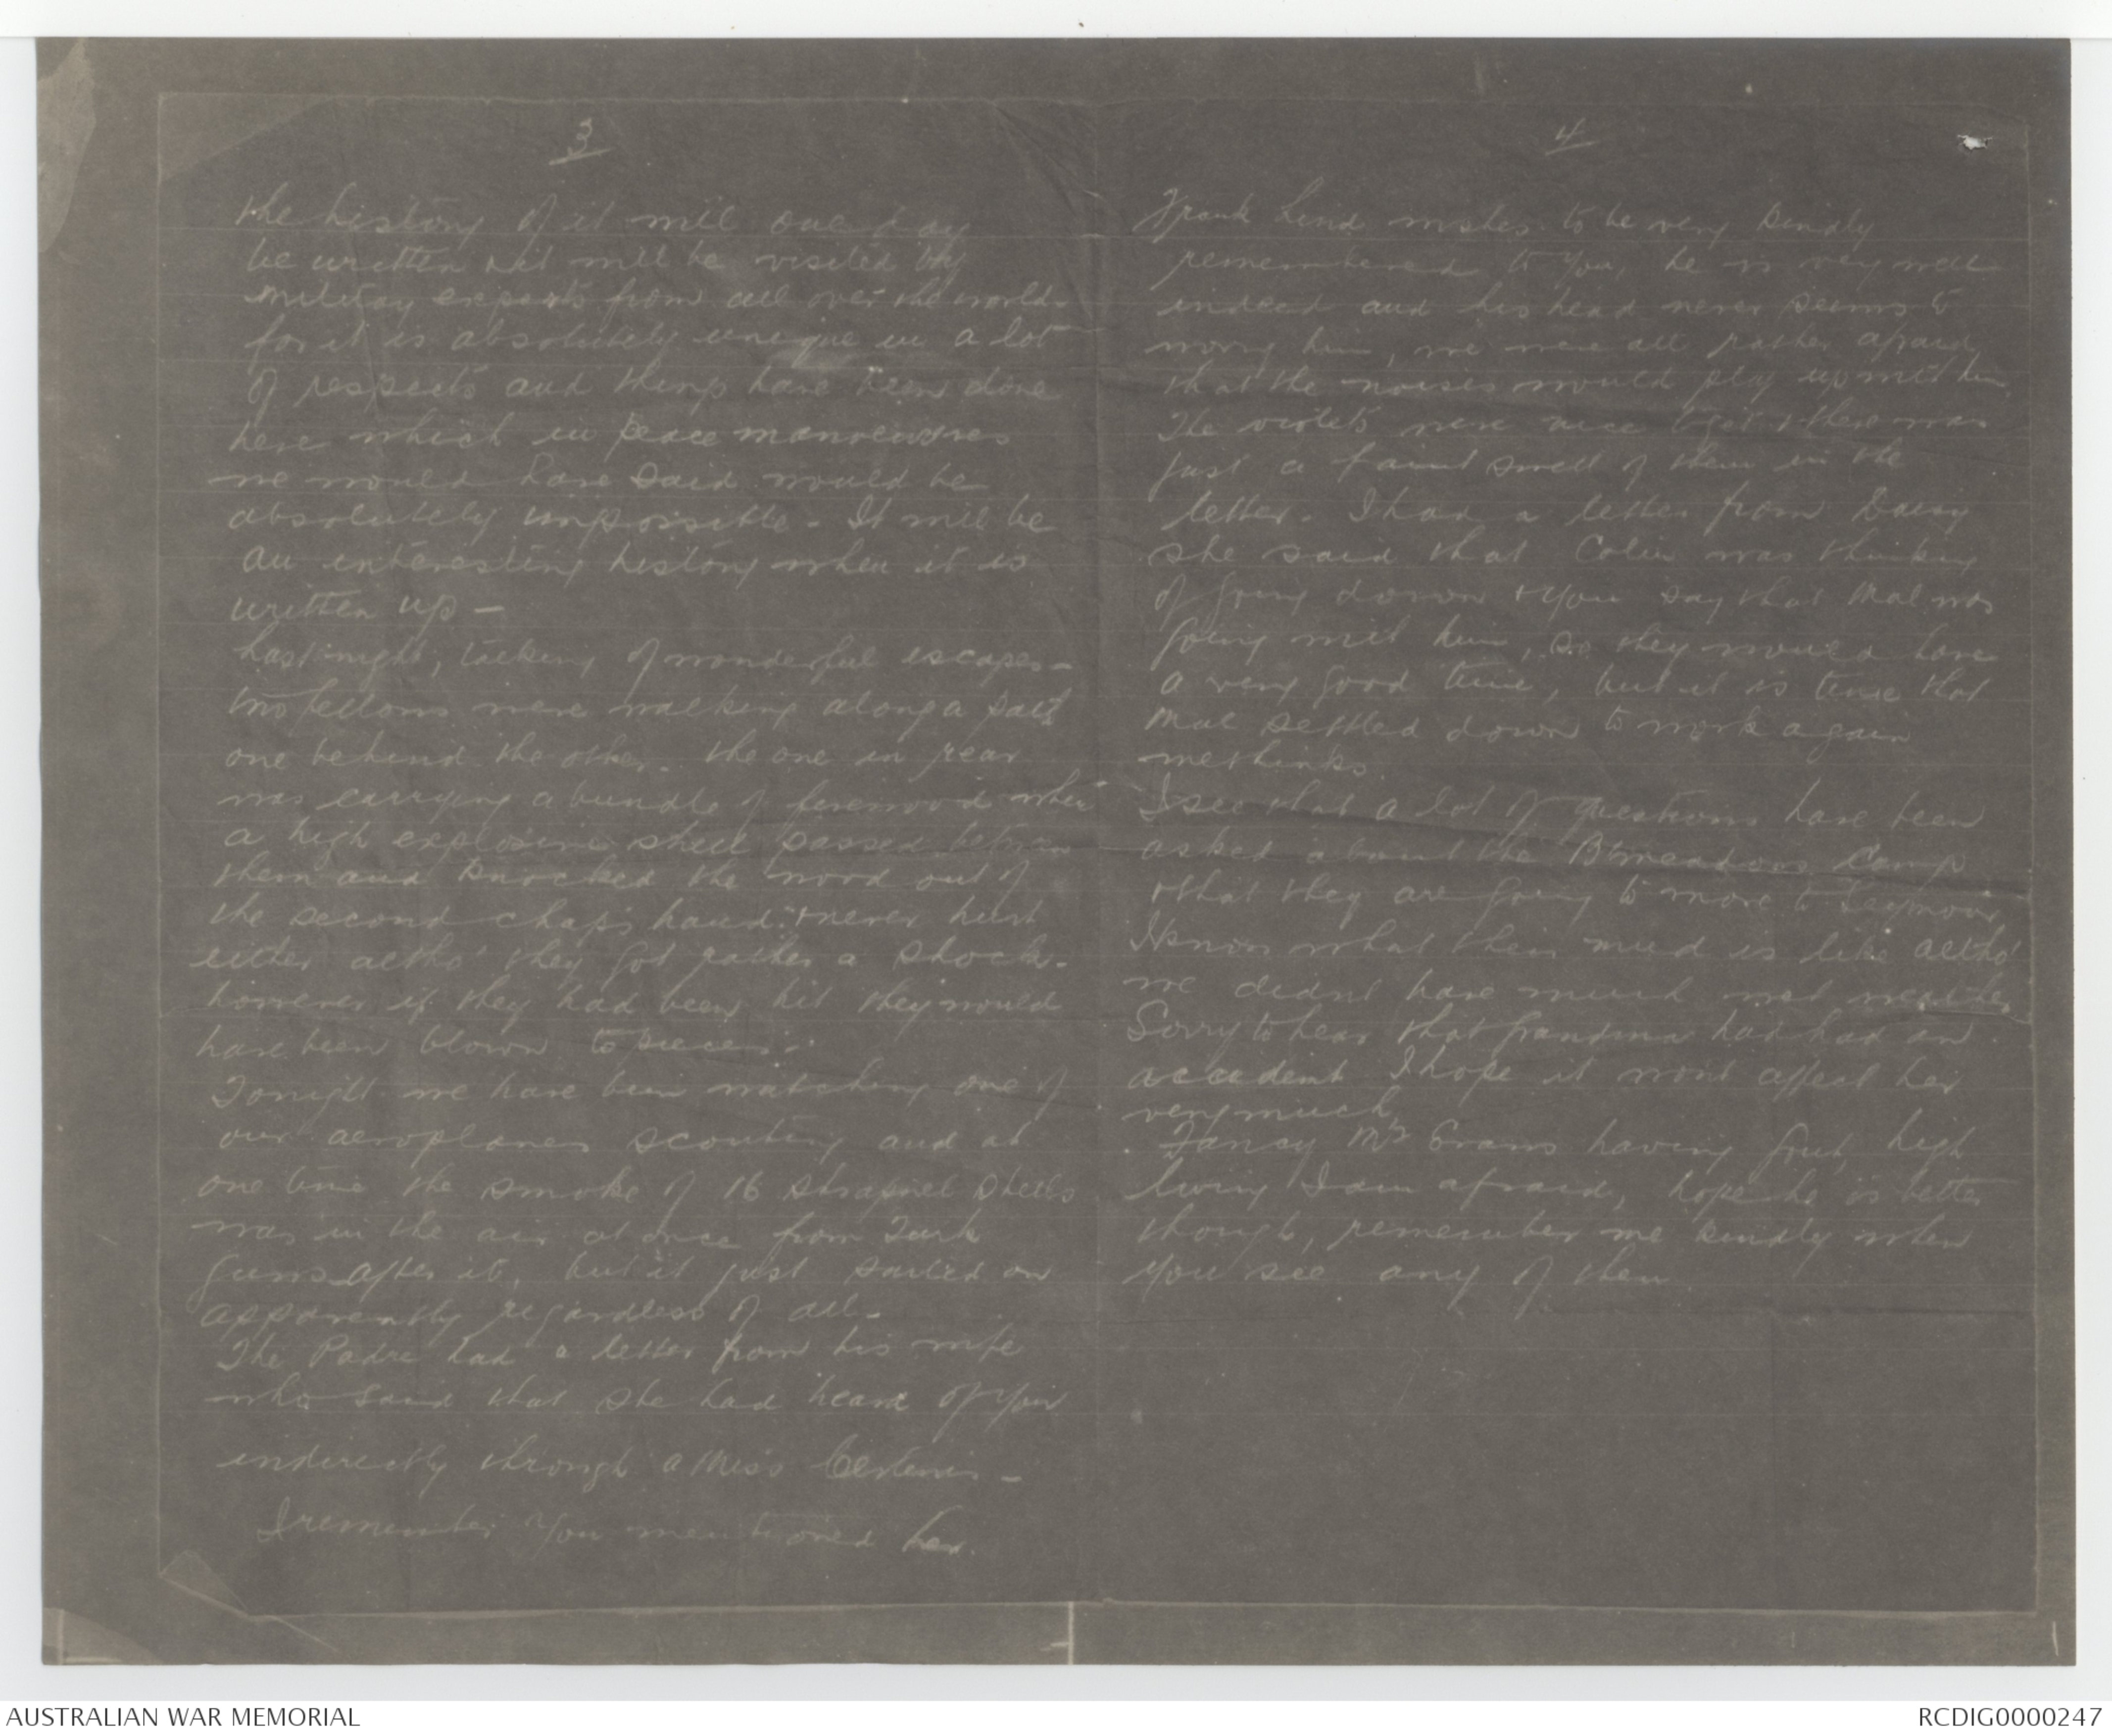 3
the history of it will one day
be written & it will be visited by
military experts from all over the world -
for it is absolutely unique in a lot
of respects and things have been done
here which in peace manoeuvres
we would have said would be
absolutely impossible - It will be
an interesting history when it is
written up -
Last night, talking of wonderful escapes -
two fellows were walking along a path
one behind the other - the one in rear
was carrying a bundle of firewood when
a high explosive shell passed between
them and knocked the wood out of
the second chap's hand & never hurt
either altho' they got rather a shock -
however if they had been hit they would
have been blown to pieces -
Tonight we have been watching one of
our aeroplanes scouting and at
one time the smoke of 16 shrapnel shells
was in the air at once from Turk
guns after it, but it just sailed on
apparently regardless of all -
The Padre had a letter from his wife
who said that she had heard of you
indirectly through a Miss
I remember you mentioned her.
4
Frank Lind wishes to be very kindly
remembered to you, he is very well
indeed and his head never seems to
worry him, we were all rather afraid
that the noises would play up with him
The violets were nice to get & there was
just a faint smell of them in the
letter. I had a letter from Daisy
she said that Colin was thinking
of going down & you say that Mal was
going with him, so they would have
a very good time, but it is time that
Mal settled down to work again
methinks.
I see that a lot of questions have been
asked about the B'meadows Camp
& that they are going to move to Seymour,
I know what their mud is like altho'
we didnt have much wet weather
Sorry to hear that grandma had had an
accident I hope it wont affect her
very much
Fancy Mr Evans having gout, high
living I am afraid, hope he is better
though, remember me kindly when
you see any of them
AUSTRALIAN WAR MEMORIAL
RCDIG0000247